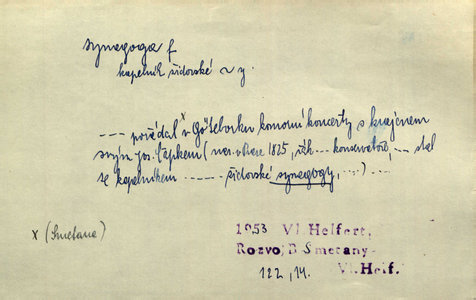 synagoga f
kapelník židovské ~ y.
x
---- pořádal v Göteborku komorní koncerty s krajanem
svým Jos. Čapkem (nar. v Praze 1825, žák --- konservatoře, --- stal
se kapelníkem ------ židovské synagogy, ---) ---
x (Smetana)
1953 Vl. Helfert,
Rozvoj B Smetany
122, 14. Vl. Helf.